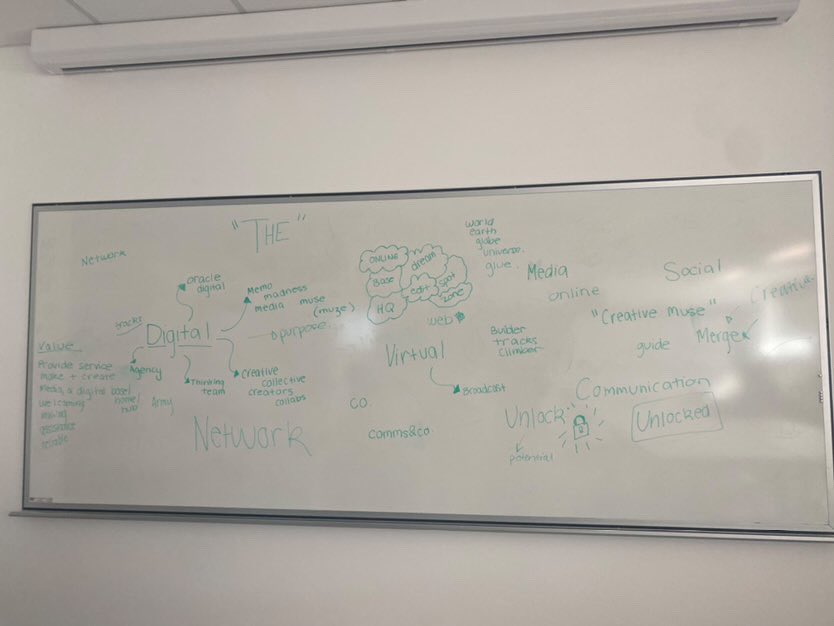 "THE"
Network
oracle
digital
Memo
madness
media muse
(muze)
purpose
tracks
Digital
Value
Provide service
make + create
Media, a digital base
welcoming
home/
hub
Army
Agency
Thinking
team
Creative
collective
creators
collabs
Network
ONLINE
dream
Base
edit
spot
zone
HQ
world
earth
globe
universe
glue
web
Virtual
Broadcast
Builder
tracks
climber
CO.
comms&co.
Media
online
Social
"Creative Muse"
Creative
guide
Merge
Communication
Unlock
potential
Unlocked